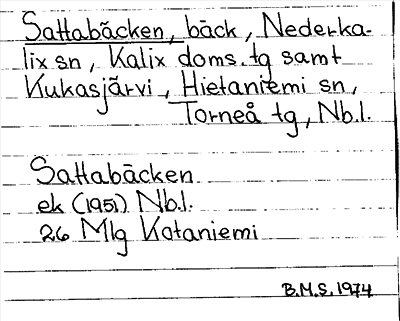 Sattabäcken, bäck, Nederka-
lix sn, Kalix doms.tg samt
Kukasjärvi, Hietaniemi sn,
Torneå tg, Nb.l.
Sattabäcken
ek (1951) Nb.l.
26 Mlg Kataniemi
B.M.S. 1974